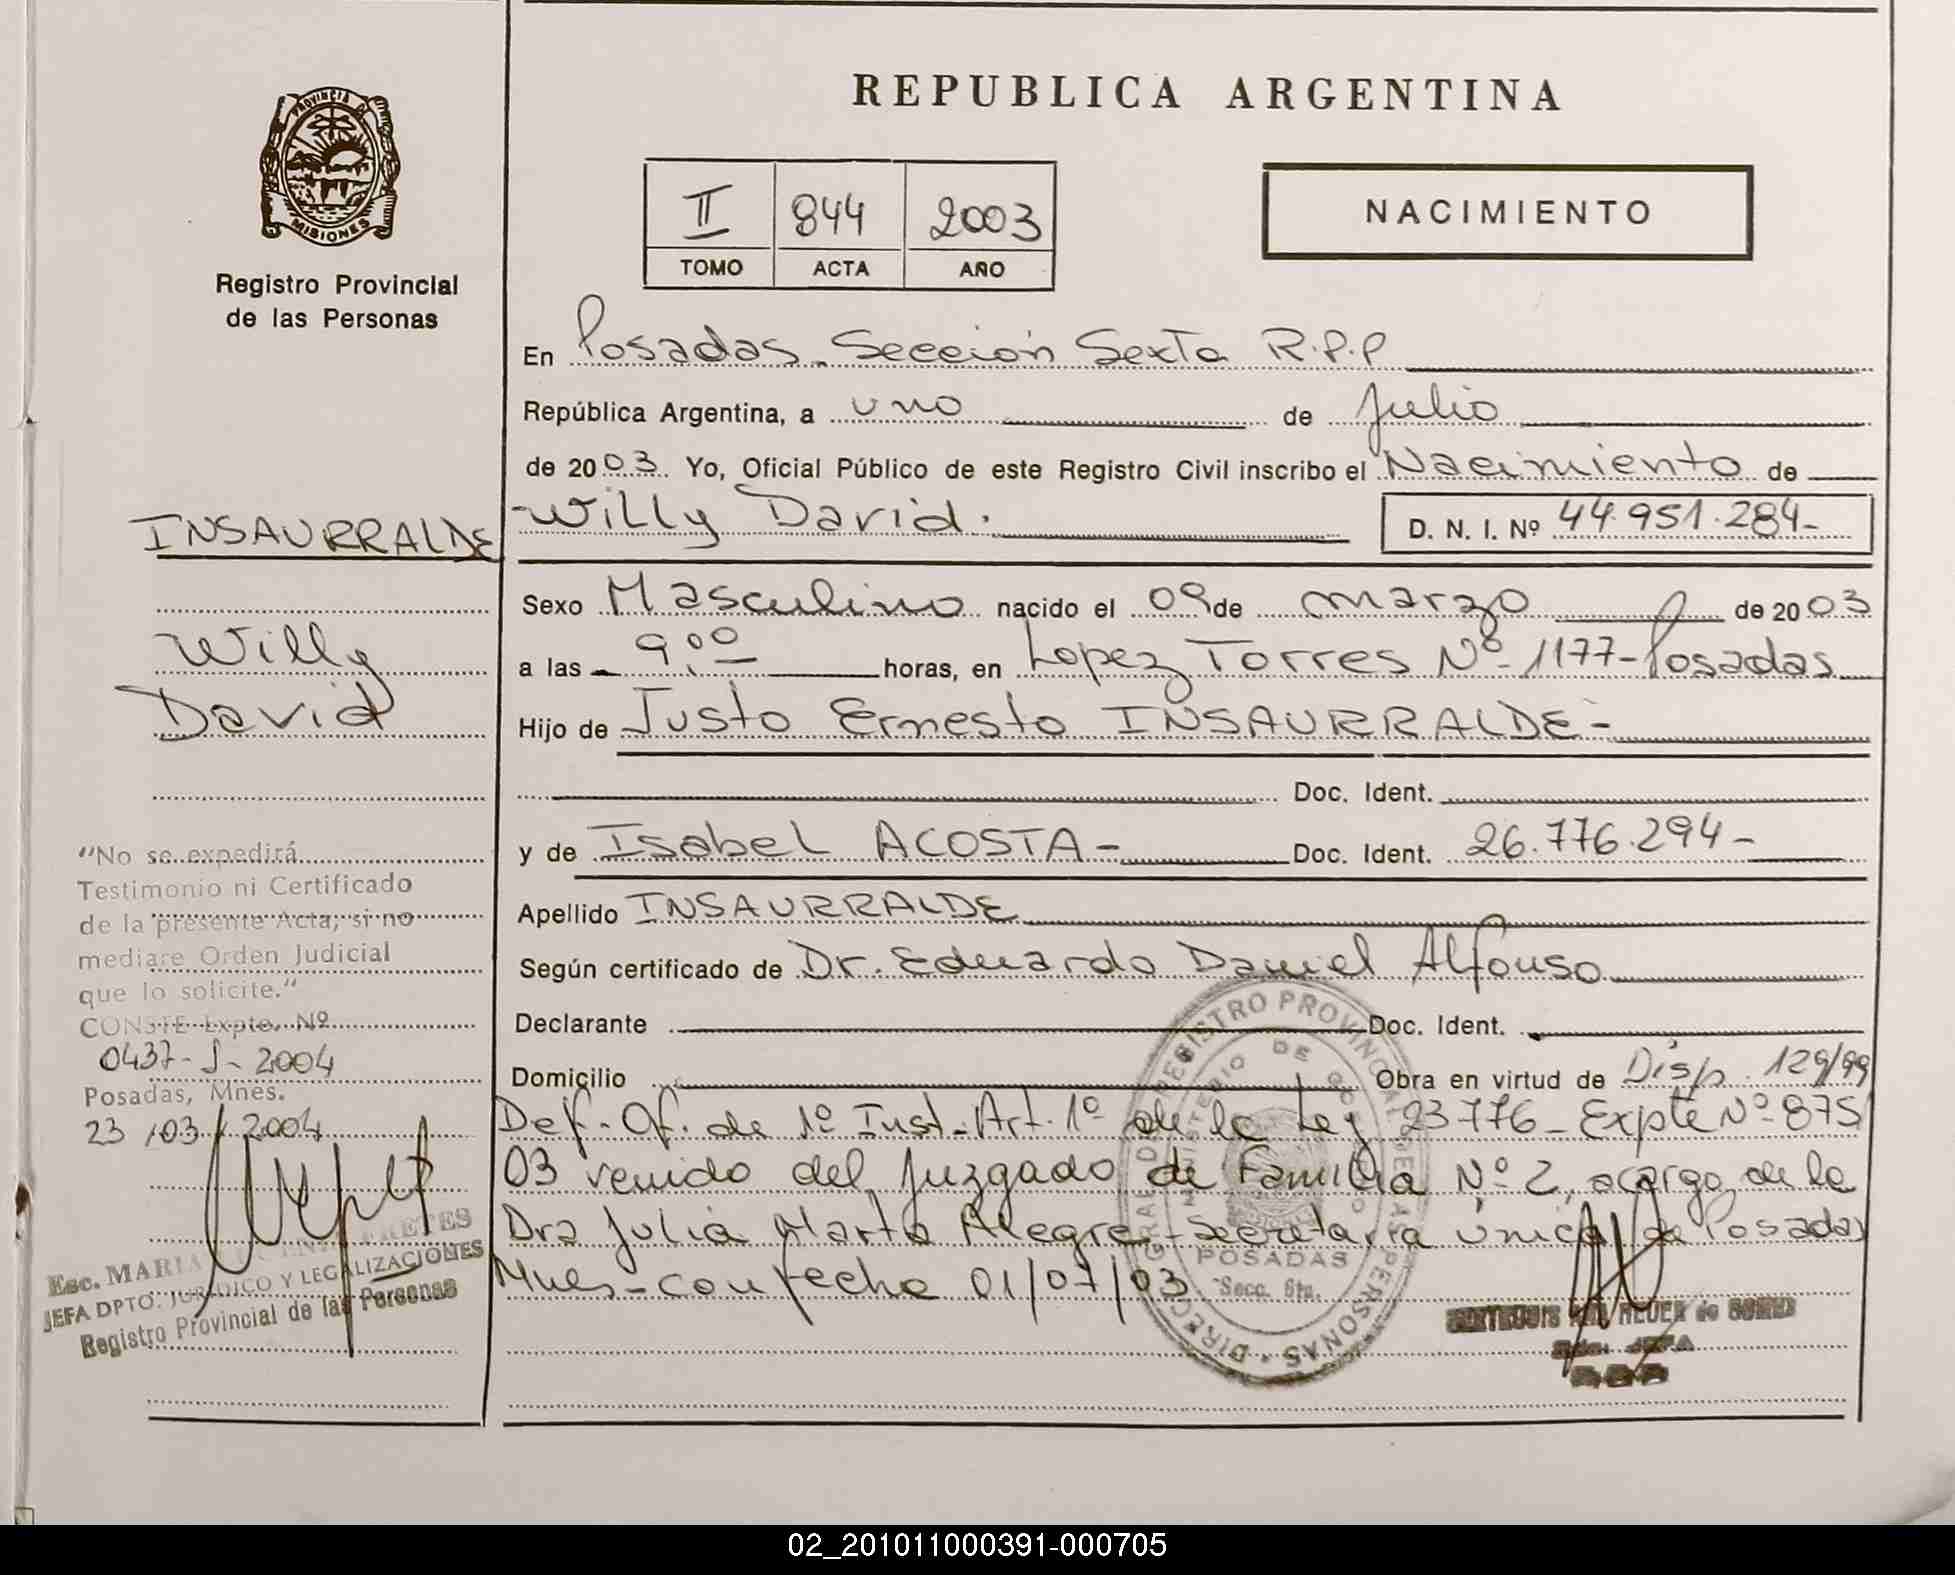 REPUBLICA ARGENTINA
PROVINCIA DE
MISIONES
Registro Provincial
de las Personas
II 844 2003
TOMO ACTA AÑO
NACIMIENTO
En Posadas - Sección Sexta R.P.P
República Argentina, a uno de Julio
de 2003. Yo, Oficial Público de este Registro Civil inscribo el Nacimiento de
INSAURRALDE
Willy David.
D. N. I. Nº 44.951.284-
Sexo Masculino nacido el 09 de marzo de 2003
Willy
a las 9,00 horas, en Lopez Torres Nº 1177- Posadas
David
Hijo de Justo Ernesto INSAURRALDE-
Doc. Ident.
y de Isabel ACOSTA- Doc. Ident. 26.776.294-
Apellido INSAURRALDE
Según certificado de Dr. Eduardo Daniel Alfonso
Declarante Doc. Ident.
Domicilio Obra en virtud de Disp. 129/99
Def. Of. de 1º Inst. Art. 1º de la Ley 23776- Expte Nº 875
03 venido del Juzgado de Familia Nº 2, acargo de la
Dra Julia Marta Alegre- Secretaria única de Posadas
Mnes- con fecha 01/07/03
"No se expedirá
Testimonio ni Certificado
de la presente Acta, si no
mediare Orden Judicial
que lo solicite."
CONSTE Expte. Nº
0437- J- 2004
Posadas, Mnes.
23 /03/ 2004
Esc. MARIA
JEFA DPTO. JURIDICO Y LEGALIZACIONES
Registro Provincial de las Personas
REGISTRO PROVINCIAL DE LAS PERSONAS
MINISTERIO DE GOBIERNO
POSADAS
Secc. 6ta.
JEFA
02_201011000391-000705